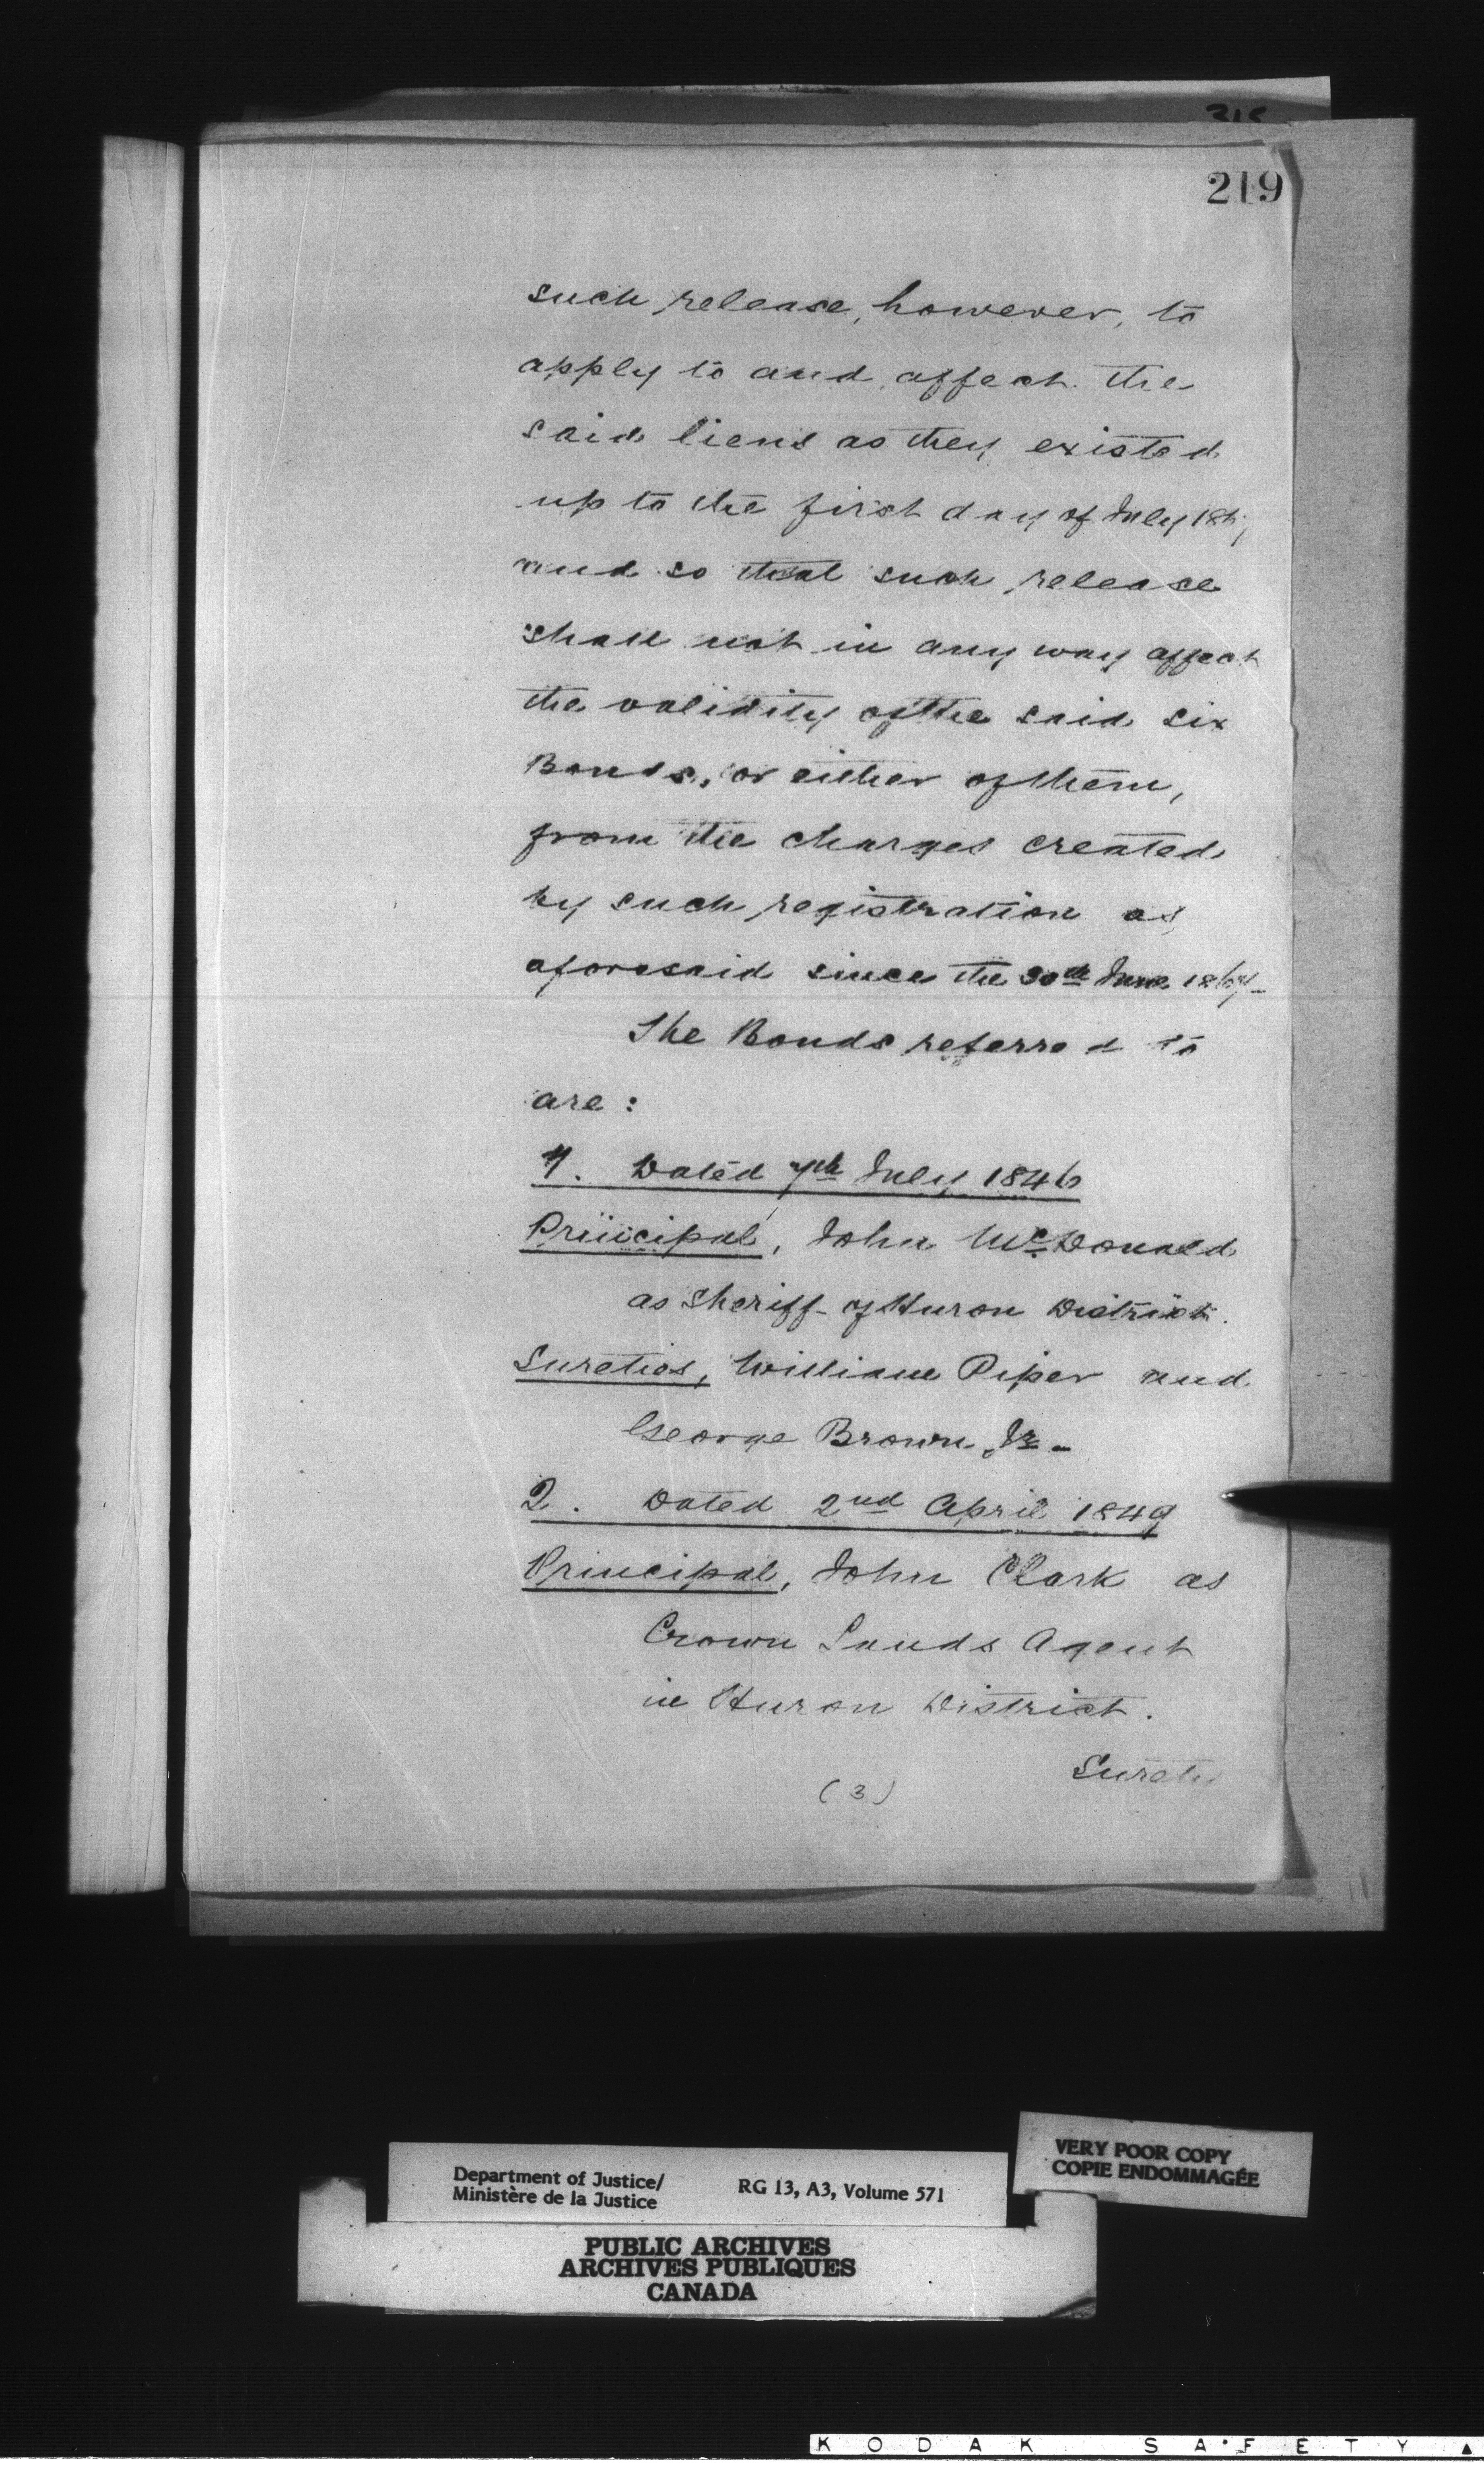 219
such release, however, to
apply to and affect the
said liens as they existed
up to the first day of July 1867
and so that such release
shall not in any way affect
the validity of the said six
Bonds, or either of them,
from the charges created
by such registration as
aforesaid since the 30th June 1867-
The Bonds referred to
are :
1. Dated 7th July 1846
Principal, John McDonald
as Sheriff of Huron District.
Sureties, William Piper and
George Brown, Jr. -
2. Dated 2nd April 1849
Principal, John Clark as
Crown Lands Agent
in Huron District.
(3)
Department of Justice/
Ministère de la Justice
RG 13, A3, Volume 571
VERY POOR COPY
COPIE ENDOMMAGÉE
PUBLIC ARCHIVES
ARCHIVES PUBLIQUES
CANADA
KODAK SAFETY